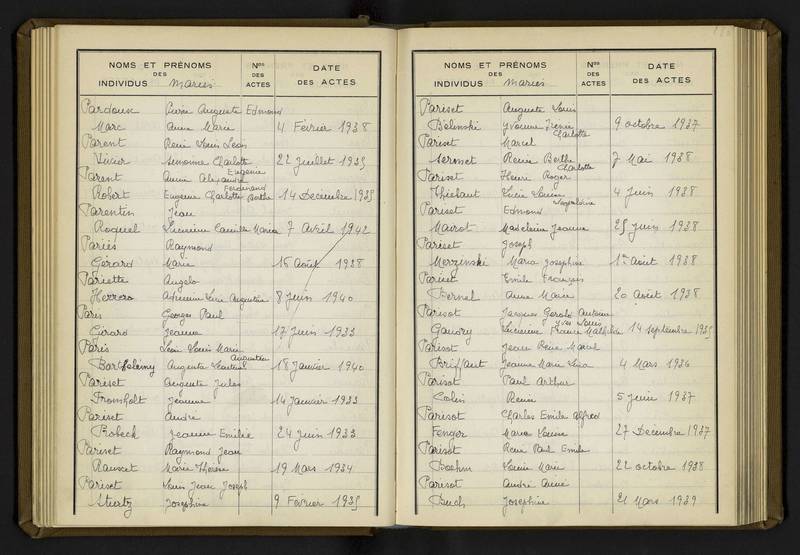 NOMS ET PRÉNOMS DES INDIVIDUS Mariés Nos DES ACTES DATE DES ACTES
Pardoux Pierre Auguste Edmond
Marc Anne Marie 4 Février 1938
Parent René Louis Léon
Simonne Charlotte 22 Juillet 1935
Eugénie
Parent Alexandre
Ferdinand
Robert Eugénie Charlotte Berthe 14 Décembre 1935
Parentin Jean
Roquel Lucienne Camille Maria 7 Avril 1942
Pariès Raymond
Gérard Marie 16 Août 1938
Pariette Angelo
Herrero Adrienne Lucie Augustine 8 Juin 1940
Paris Georges Paul
Girard Jeanne 17 Juin 1933
Paris Léon Louis Marie
Augustine
Barthélémy Augusta 18 Janvier 1940
Pariset Auguste Jules
Fromholt Jeanne 14 Janvier 1933
Pariset André
Robeck Jeanne Emilie 24 Juin 1933
Pariset Raymond Jean
Marie Thérèse 19 Mars 1934
Pariset Louis Jean Joseph
Joséphine 9 Février 1935
NOMS ET PRÉNOMS DES INDIVIDUS Mariés Nos DES ACTES DATE DES ACTES
Pariset Auguste Louis
Belinski Yvonne Irénie 9 octobre 1937
Charlotte
Pariset Marcel
Sermet Renée Berthe 7 Mai 1938
Charlotte
Pariset Henri Roger
Thiébaut Lucie Louise 4 Juin 1938
Magdeleine
Pariset Edmond
Mairot Madeleine Jeanne 25 Juin 1938
Pariset Joseph
Morzinski Maria Joséphine 1er Août 1938
Pariset Emile François
Bernel Anne Marie 20 Août 1938
Parisot Jacques Gérold Antoine
Yves Louis
Gauvry Lucienne France Mathilde 14 Septembre 1935
Parisot Jean René Marcel
Briffaut Jeanne Marie 4 Mars 1936
Parisot Paul Arthur
Colin Renée 5 Juin 1937
Parisot Charles Emile Alfred
Fenger Maria Louise 27 Décembre 1937
Parisot René Paul Emile
Boehm Louise Marie 22 octobre 1938
Parisot André Aimé
Buch Joséphine 21 Mars 1939